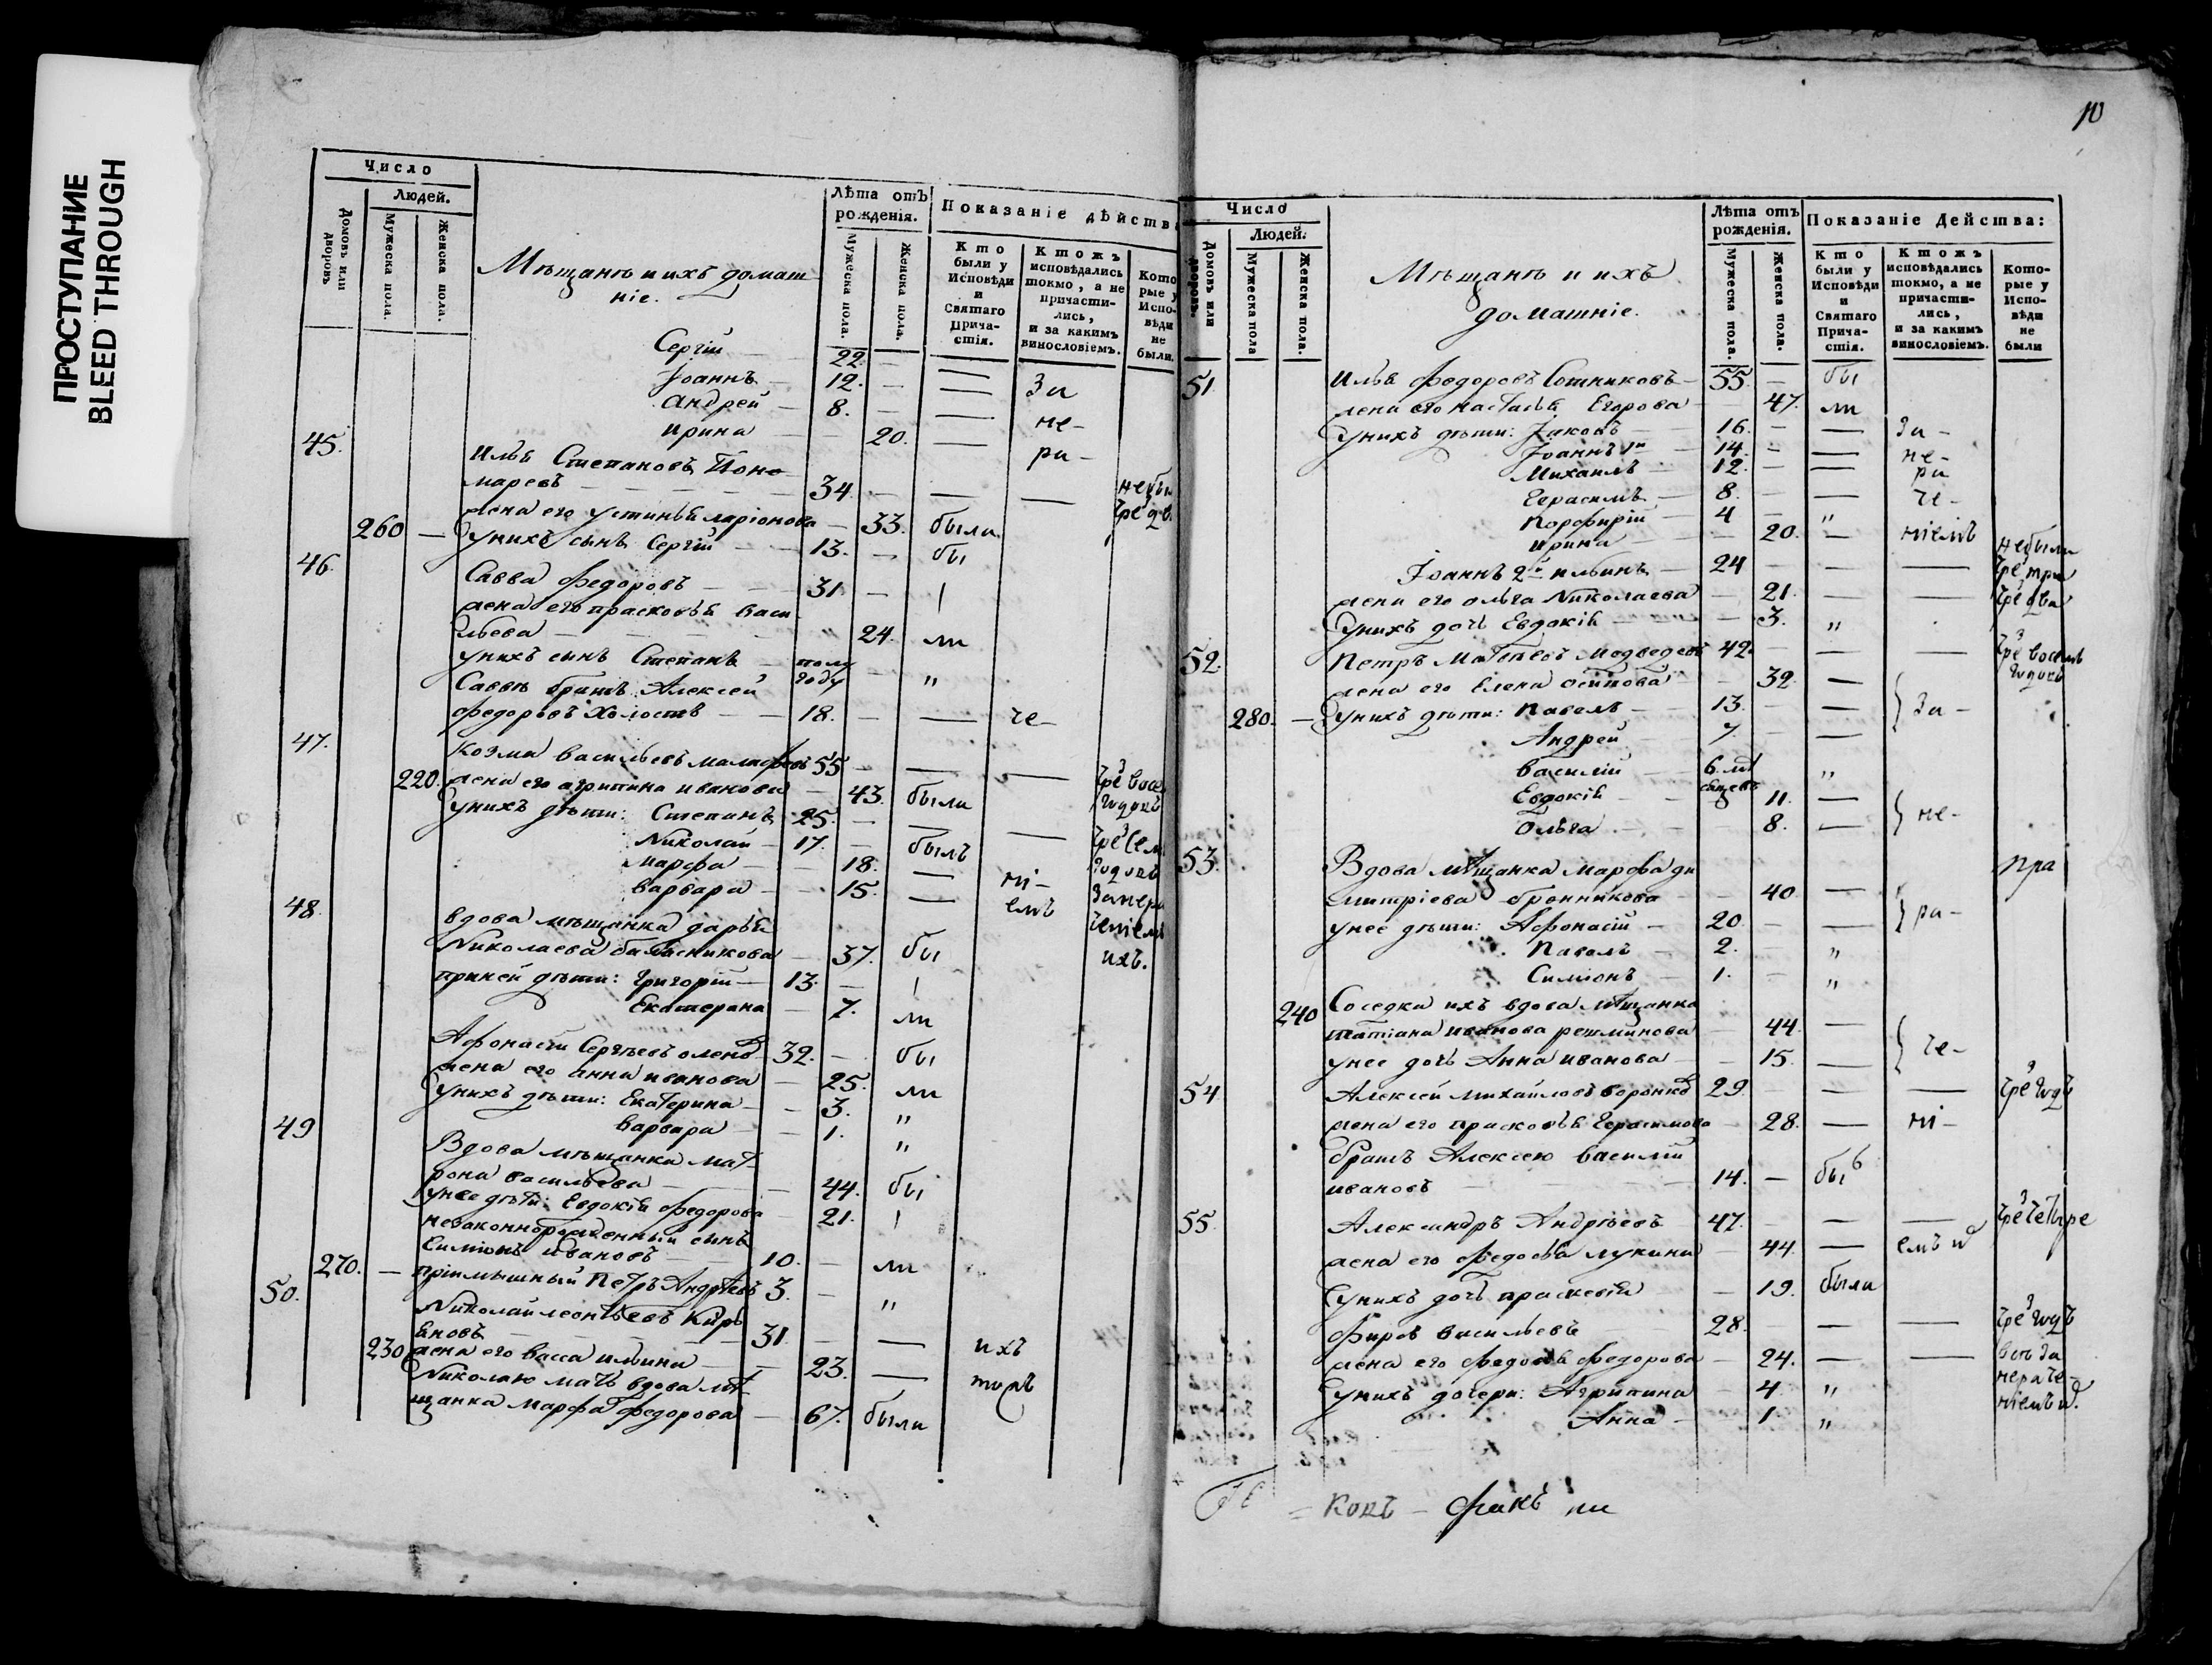 ПРОСТУПАНИЕ
BLEED THROUGH
Число
Людей.
Домовъ или дворовъ
Мужеска пола.
Женска пола.
Мѣщанъ и ихъ домаш
ніе.
Лѣта отъ рожденія.
Мужеска пола.
Женска пола.
Показаніе дѣйств
Кто были у Исповѣди и Святаго Прича-стія.
Ктожъ исповѣдались токмо, а не причасти-лись, и за какимъ винословіемъ.
Кото рые у Испо-вѣди не были.
Сергій 22.
Іоаннъ 12. — За
Андрей 8. — не-
Ирина 20. — ра-
45. Илья Степановъ Поно
маревъ 34. — — небы
жена его Устинья Ларіонова 33. были
260 — у нихъ сынъ Сергій 13. бы
46. Савва Федоровъ 31
жена его Прасковья Васи
льева " 24. ли
у нихъ сынъ Степанъ полу году "
Саввы братъ Алексей
Федоровъ холостъ 18. — че-
47. Козма Васильевъ 55 — —
220. жена его Агрипина Иванова 43. были
у нихъ дѣти: Степанъ 25. — —
Николай 17. былъ
Марфа 18. — ні-
Варвара 15. — емъ
48. вдова мѣщанка Дарья
Николаева 37. бы ихъ.
при ней дѣти: Григорій 13.
Екатерина 7. ли
Афонасій Сергѣевъ 32. бы
жена его Анна Иванова 25. ли
у нихъ дѣти: Екатерина 3. "
Варвара 1. "
49 Вдова мѣщанка Мат
рона Васильева 44. бы
у нее дѣти: Евдокія Федорова 21.
незаконнорожденный сынъ
Симіонъ Ивановъ 10. ли
270. — пріимышный Петръ Андрѣевъ 3. "
50. Николай Леонтьевъ Кир
31. — ихъ
230 жена его Васса Ильина 23. —
Николаю мать вдова мѣ
щанка Марфа Федорова 67. были
10
Число
Людей.
Домовъ или дворовъ.
Мужеска пола
Женска пола.
Мѣщанъ и ихъ
домашніе.
Лѣта отъ рожденія.
Мужеска пола.
Женска пола.
Показаніе Действа:
Кто были у Исповѣди и Святаго Прича-стія.
Ктожъ исповѣдались токмо, а не причасти-лись, и за какимъ винословіемъ.
Кото-рые у Испо-вѣди не были
51. Илья Федоровъ Сотниковъ 55. — бы
жена его Настасья Егорова 47. ли
у нихъ дѣти: Іаковъ 16. — За-
Іоаннъ 1й 14. — не-
Михаилъ 12. — ра
Герасимъ 8. — че-
Порфирій 4 "
Ирина 20. — ніемъ небыли
Іоаннъ 2й Ильинъ 24 — — чрез три
жена его Ольга Николаева 21. — — чрез два
у нихъ дочь Евдокія 3. "
52. Петръ Матвѣевъ Медведевъ 42. — — чрез восемь годовъ
жена его Елена Осипова 32. —
280. — у нихъ дѣти: Павелъ 13. — За-
Андрей 7. —
Василій 6. мѣ сяцевъ "
Евдокія 11. — не-
Ольга 8. —
53. Вдова мѣщанка Марфа Ди
митріева Бронникова 40. —
у нее дѣти: Афонасій 20. — ра-
Павелъ 2. "
Симіонъ 1. "
Соседка ихъ вдова мѣщанка
240 Татіана Иванова 44. —
у нее дочь Анна Иванова 15. — че-
54. Алексей Михайловъ 29. — — чрез годъ
жена его Прасковья Герасимова 28. — ні-
братъ Алексею Василій
Ивановъ 14. — бы
55. Александръ Андрѣевъ 47. — — чрез четыре
жена его Федосья Лукина 44. — емъ
у нихъ дочь Праскевія 19. были
Фирсъ Васильевъ 28. — — чрез годъ
жена его Федосья Федорова 24. — — всѣ за
у нихъ дочери: Агрипина 4. " нераче-
Анна 1 " ніемъ